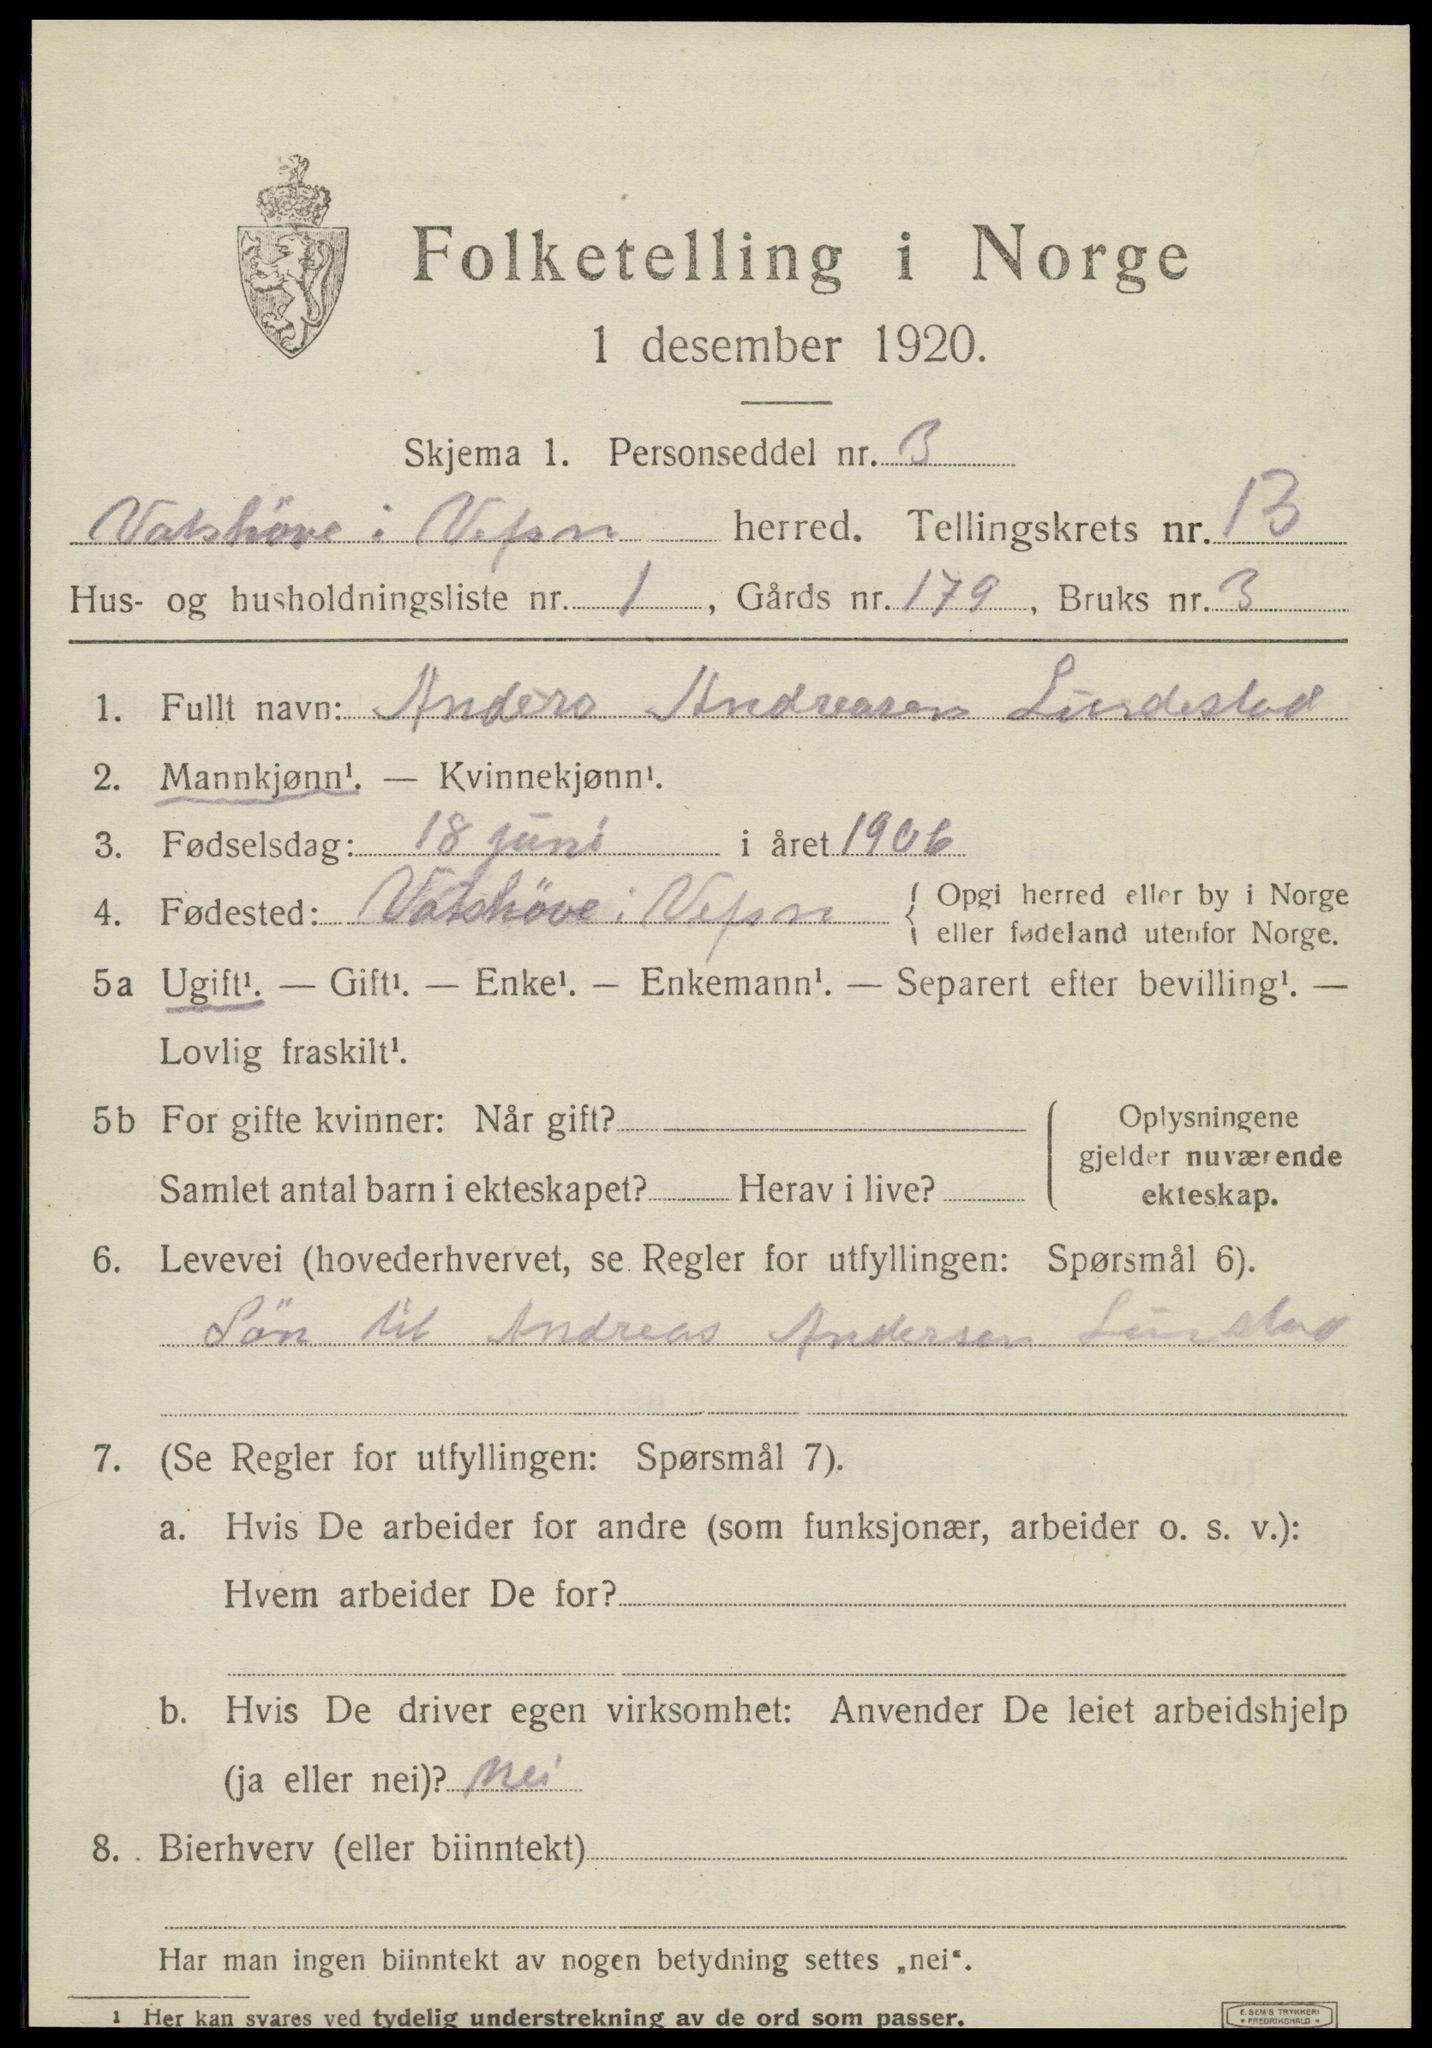 Folketelling i Norge
1 desember 1920.
Skjema 1. Personseddel nr. 3
Vatshöve i Vefsn herred. Tellingskrets nr. 13
Hus- og husholdningsliste nr. 1, Gårds nr. 179, Bruks nr. 3
1. Fullt navn: Anders Andreasen Lundestad
2. Mannkjønn¹. — Kvinnekjønn¹.
3. Fødselsdag: 18 juni i året 1906
4. Fødested: Vatshöve i Vefsn { Opgi herred eller by i Norge
eller fødeland utenfor Norge.
5a Ugift¹. — Gift¹. — Enke¹. — Enkemann¹. — Separert efter bevilling¹. —
Lovlig fraskilt¹.
5b For gifte kvinner: Når gift?
Samlet antal barn i ekteskapet? Herav i live?
Oplysningene
gjelder nuværende
ekteskap.
6. Levevei (hovederhvervet, se Regler for utfyllingen: Spørsmål 6).
Sön til Andreas Andersen Lundstad
7. (Se Regler for utfyllingen: Spørsmål 7).
a. Hvis De arbeider for andre (som funksjonær, arbeider o. s. v.):
Hvem arbeider De for?
b. Hvis De driver egen virksomhet: Anvender De leiet arbeidshjelp
(ja eller nei)? Nei
8. Bierhverv (eller biinntekt)
Har man ingen biinntekt av nogen betydning settes „nei“.
1 Her kan svares ved tydelig understrekning av de ord som passer.
E. SEM'S TRYKKERI
• FREDRIKSHALD •